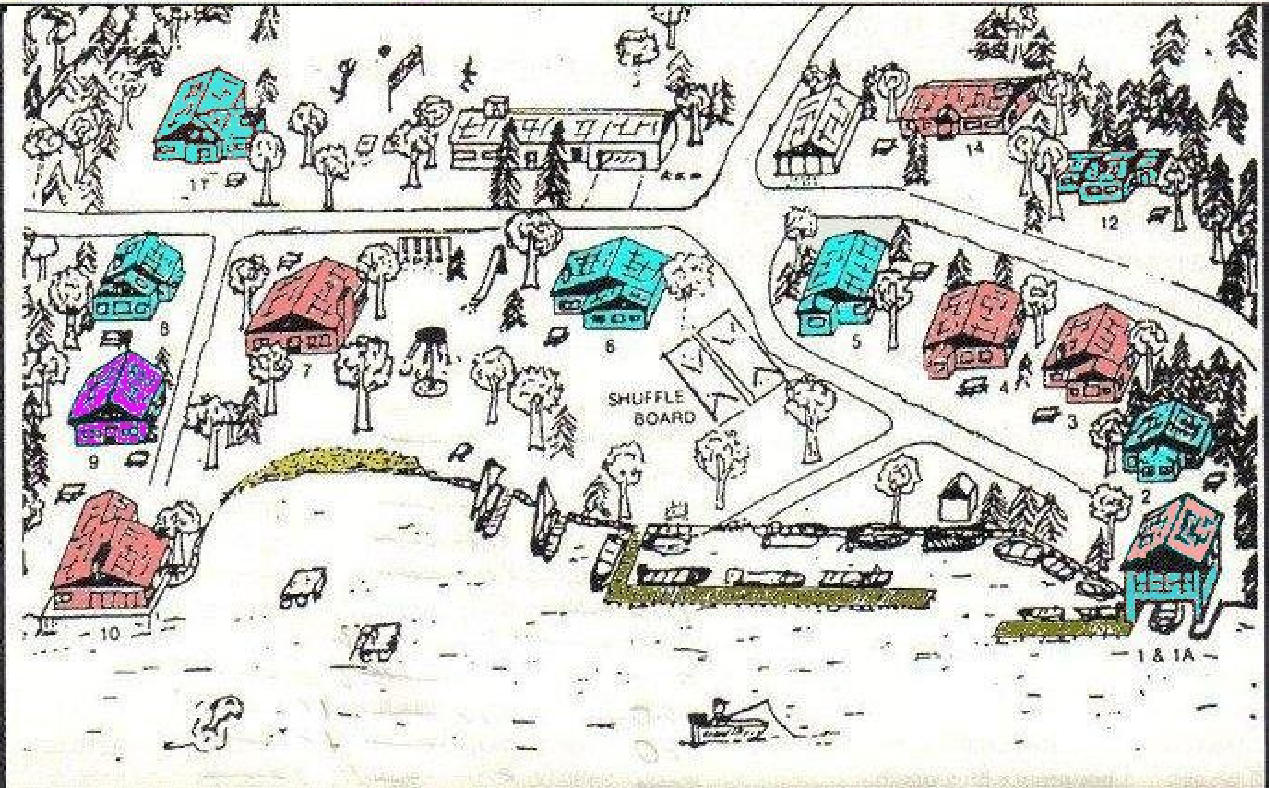 14
11
12
8
5
6
7
4
SHUFFLE
BOARD
3
9
2
10
- 1 & 1A -